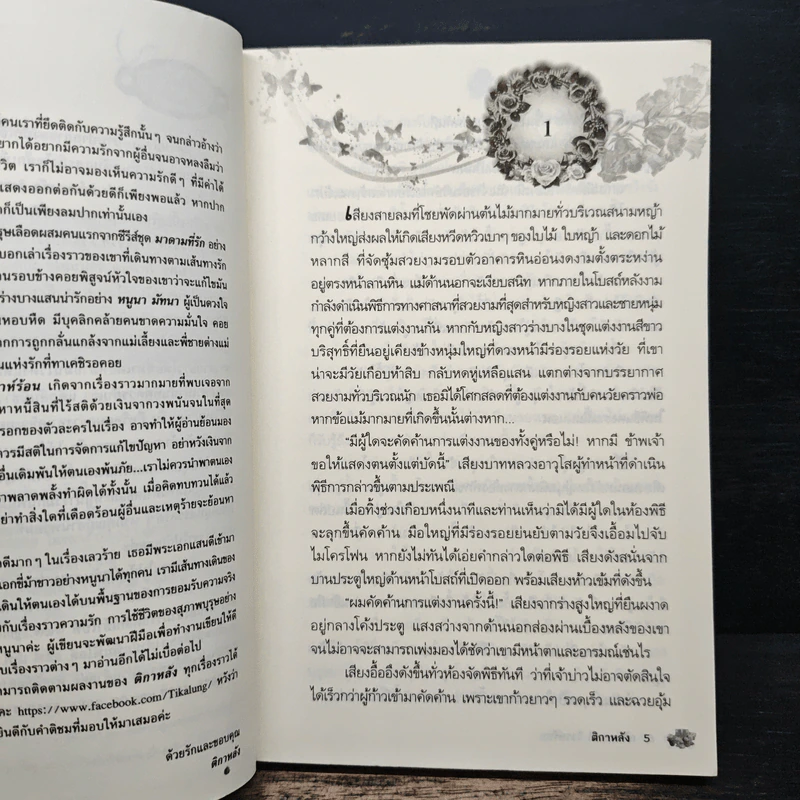 คนเราที่ยึดติดกับความรู้สึกนั้นๆ จนกล่าวอ้างว่า
ยากได้อยากมีความรักจากผู้อื่นจนอาจหลงลืมว่า
วิต เราก็ไม่อาจมองเห็นความรักดีๆ ที่มีค่าได้
แสดงออกต่อกันด้วยดีก็เพียงพอแล้ว หากปาก
าก็เป็นเพียงลมปากเท่านั้นเอง
รุษเลือดผสมคนแรกจากซีรีส์ชุด มาดามที่รัก อย่าง
บอกเล่าเรื่องราวของเขาที่เดินทางตามเส้นทางรัก
านรอบข้างคอยพิสูจน์หัวใจของเขาว่าจะแก้ไขมัน
ร่างบางแสนน่ารักอย่าง หนูนา มัทนา ผู้เป็นดวงใจ
นหอบหืด มีบุคลิกคล้ายคนขาดความมั่นใจ คอย
ากการถูกกลั่นแกล้งจากแม่เลี้ยงและพี่ชายต่างแม่
นแห่งรักที่ทาเคชิรอคอย
าห์ร้อน เกิดจากเรื่องราวมากมายที่พบเจอจาก
หาหนี้สินที่ไร้สติด้วยเงินจากวงพนันจนในที่สุด
รอกของตัวละครในเรื่อง อาจทำให้ผู้อ่านย้อนมอง
ควรมีสติในการจัดการแก้ไขปัญหา อย่าหวังเงินจาก
อื่นเดิมพันให้ตนเองพ้นภัย...เราไม่ควรนำพาตนเอง
าพลาดพลั้งทำผิดได้ทั้งนั้น เมื่อคิดทบทวนได้แล้ว
ย่าทำสิ่งใดที่เดือดร้อนผู้อื่นและเหตุร้ายจะย้อนหา
ดีมากๆ ในเรื่องเลวร้าย เธอมีพระเอกแสนดีเข้ามา
เอกขี่ม้าขาวอย่างหนูนาได้ทุกคน เรามีเส้นทางเดินของ
เดินให้ตนเองได้บนพื้นฐานของการยอมรับความจริง
งกับเรื่องราวความรัก การใช้ชีวิตของสุภาพบุรุษอย่าง
หนูนาค่ะ ผู้เขียนจะพัฒนาฝีมือเพื่อทำงานเขียนให้ดี
บเรื่องราวต่างๆ มาอ่านอีกได้ไม่เบื่อต่อไป
ามารถติดตามผลงานของ ติกาหลัง ทุกเรื่องราวได้
คะ https://www.facebook.com/Tikalung/ หวังว่า
ยินดีกับคำติชมที่มอบให้มาเสมอค่ะ
ด้วยรักและขอบคุณ
ติกาหลัง
1
เสียงสายลมที่โชยพัดผ่านต้นไม้มากมายทั่วบริเวณสนามหญ้า
กว้างใหญ่ส่งผลให้เกิดเสียงหวีดหวิวเบาๆ ของใบไม้ ใบหญ้า และดอกไม้
หลากสี ที่จัดซุ้มสวยงามรอบตัวอาคารหินอ่อนงดงามตั้งตระหง่าน
อยู่ตรงหน้าลานหิน แม้ด้านนอกจะเงียบสนิท หากภายในโบสถ์หลังงาม
กำลังดำเนินพิธีการทางศาสนาที่สวยงามที่สุดสำหรับหญิงสาวและชายหนุ่ม
ทุกคู่ที่ต้องการแต่งงานกัน หากกับหญิงสาวร่างบางในชุดแต่งงานสีขาว
บริสุทธิ์ที่ยืนอยู่เคียงข้างหนุ่มใหญ่ที่ดวงหน้ามีร่องรอยแห่งวัย ที่เขา
น่าจะมีวัยเกือบห้าสิบ กลับหดหู่เหลือแสน แตกต่างจากบรรยากาศ
สวยงามทั่วบริเวณนัก เธอมิได้โศกสลดที่ต้องแต่งงานกับคนวัยคราวพ่อ
หากข้อแม้มากมายที่เกิดขึ้นนั้นต่างหาก...
“มีผู้ใดจะคัดค้านการแต่งงานของทั้งคู่หรือไม่! หากมี ข้าพเจ้า
ขอให้แสดงตนตั้งแต่บัดนี้” เสียงบาทหลวงอาวุโสผู้ทำหน้าที่ดำเนิน
พิธีการกล่าวขึ้นตามประเพณี
เมื่อทิ้งช่วงเกือบหนึ่งนาทีและท่านเห็นว่ามิได้มีผู้ใดในห้องพิธี
จะลุกขึ้นคัดค้าน มือใหญ่ที่มีร่องรอยย่นยับตามวัยจึงเอื้อมไปจับ
ไมโครโฟน หากยังไม่ทันได้เอ่ยคำกล่าวใดต่อพิธี เสียงดังสนั่นจาก
บานประตูใหญ่ด้านหน้าโบสถ์ที่เปิดออก พร้อมเสียงห้าวเข้มที่ดังขึ้น
“ผมคัดค้านการแต่งงานครั้งนี้!” เสียงจากร่างสูงใหญ่ที่ยืนผงาด
อยู่กลางโค้งประตู แสงสว่างจากด้านนอกส่องผ่านเบื้องหลังของเขา
จนไม่อาจจะสามารถเพ่งมองได้ชัดว่าเขามีหน้าตาและอารมณ์เช่นไร
เสียงอื้ออึงดังขึ้นทั่วห้องจัดพิธีทันที ว่าที่เจ้าบ่าวไม่อาจตัดสินใจ
ได้เร็วกว่าผู้ก้าวเข้ามาคัดค้าน เพราะเขาก้าวยาวๆ รวดเร็ว และฉวยอุ้ม
ติกาหลัง 5